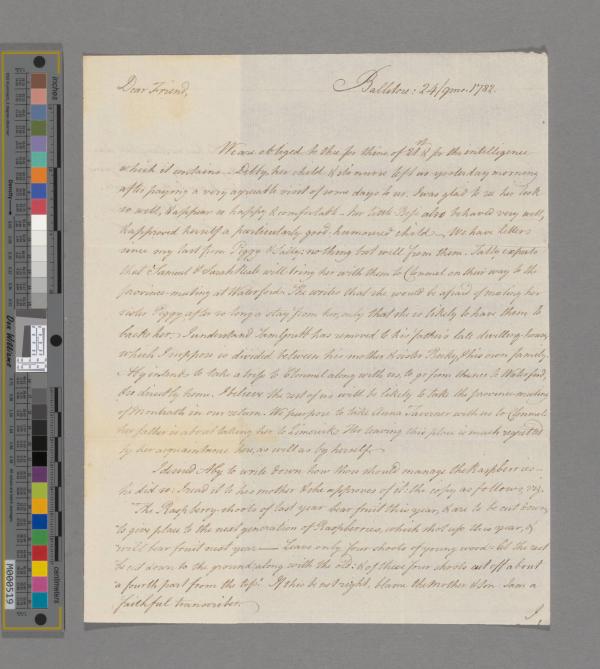 Dear Friend, Ballitore: 24/9mo. 1782.
We are obliged to thee for thine of 21st & for the intelligence
which it contains. Debby, her child & its nurse left us yesterday morning
after paying a very agreeable visit of some days to us. I was glad to see her look
so well, & appear so happy & comfortable her little Bess also behaved very well,
& approved herself a particularly good humoured child. We have letters
since my last from Peggy & Sally: nothing but well from them. Sally expects
that Samuel & Sarah Neale will bring her with them to Clonmel on their way to the
province-meeting at Waterford. She writes that she would be afraid of meeting her
sister Peggy after so long a stay from her, only that she is likely to have them to
back her. I understand has removed to his father's late dwelling-house,
which I suppose is divided between his mother & sister & his own family.
Aby intends to take a trip to Clonmel along with us, to go from thence to Waterford,
& so directly home. I believe the rest of us will be likely to take the province-meeting
of Montrath in our return. We purpose to take Anna Taverner with us to Clonmel:
her father is about taking her to Limerick. Her leaving this place is much regretted
by her acquaintances here, as well as by herself.
I desired Aby to write down how thou should manage the Raspberries
he did so: I read it to his mother & she approves of it: the copy as follows, viz.
"The Raspberry-shoots of last year bear fruit this year, & are to be cut down,
"to give place to the next generation of Raspberries, which shot up this year, &
"will bear fruit next year — Leave only four shoots of young wood: let the rest
"be cut down to the ground along with the old: & of these four shoots cut off about
"a fourth part from the top." If this be not right, blame the Mother & Son: I am a
faithful transcriber.
I
inches
centimetres
Don Williams
M000519